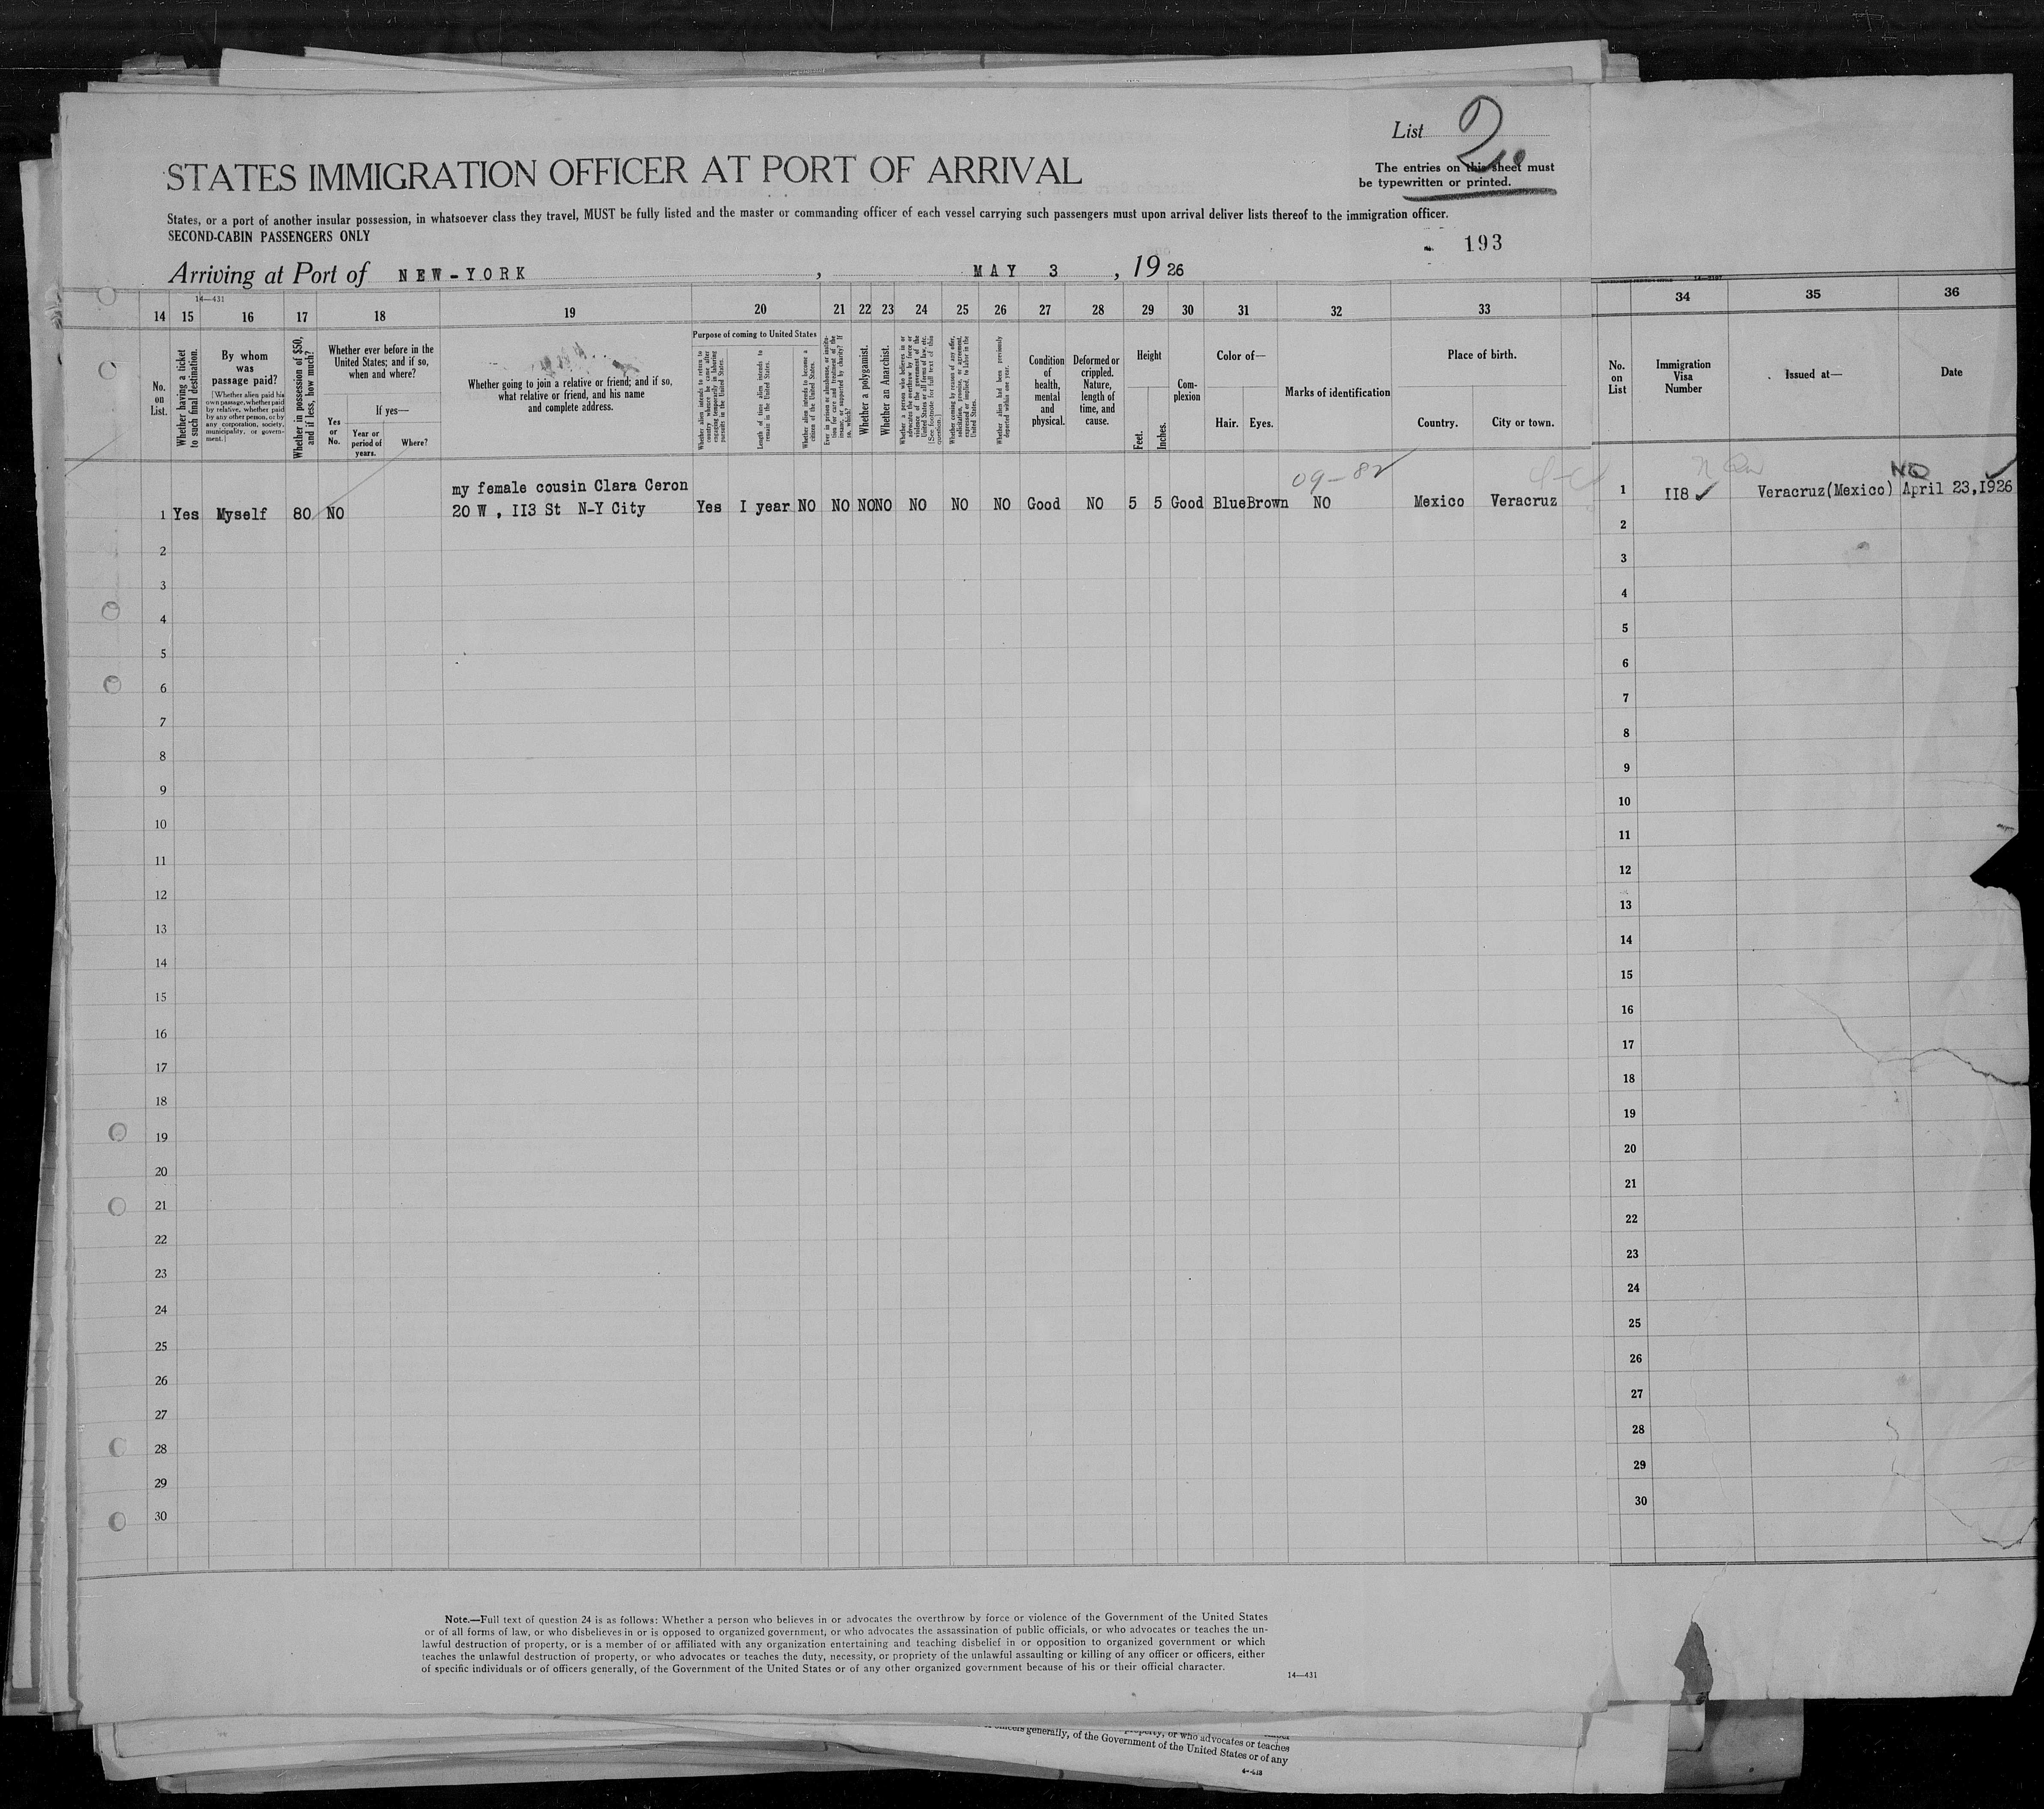 List 2
The entries on this sheet must
be typewritten or printed.
STATES IMMIGRATION OFFICER AT PORT OF ARRIVAL
States, or a port of another insular possession, in whatsoever class they travel, MUST be fully listed and the master or commanding officer of each vessel carrying such passengers must upon arrival deliver lists thereof to the immigration officer.
SECOND-CABIN PASSENGERS ONLY
193
Arriving at Port of NEW-YORK, MAY 3, 1926
14—431
14 15 16 17 18 19 20 21 22 23 24 25 26 27 28 29 30 31 32 33 34 35 36
No. on List.
Whether having a ticket to such final destination.
By whom was passage paid?
[Whether alien paid his own passage, whether paid by relative, whether paid by any other person, or by any corporation, society, municipality, or government.]
Whether in possession of $50, and if less, how much?
Whether ever before in the United States; and if so, when and where?
Yes or No.
If yes—
Year or period of years.
Where?
Whether going to join a relative or friend; and if so, what relative or friend, and his name and complete address.
Purpose of coming to United States
Whether alien intends to return to country whence he came after engaging temporarily in laboring pursuits in the United States.
Length of time alien intends to remain in the United States.
Whether alien intends to become a citizen of the United States.
Ever in prison or almshouse, or institution for care and treatment of the insane, or supported by charity? If so, which?
Whether a polygamist.
Whether an Anarchist.
Whether a person who believes in or advocates the overthrow by force or violence of the Government of the United States or all forms of law, etc. [See footnote for full text of this question.]
Whether coming by reason of any offer, solicitation, promise, or agreement, expressed or implied, to labor in the United States.
Whether alien had been previously deported within one year.
Condition of health, mental and physical.
Deformed or crippled. Nature, length of time, and cause.
Height
Feet.
Inches.
Complexion
Color of—
Hair.
Eyes.
Marks of identification
Place of birth.
Country.
City or town.
No. on List
Immigration Visa Number
Issued at—
Date
09-82
NQ
my female cousin Clara Ceron
1 Yes Myself 80 NO 20 W , II3 St N-Y City Yes I year NO NO NO NO NO NO NO Good NO 5 5 Good Blue Brown NO Mexico Veracruz 1 II8 Veracruz(Mexico) April 23,1926
2 2
3 3
4 4
5 5
6 6
7 7
8 8
9 9
10 10
11 11
12 12
13 13
14 14
15 15
16 16
17 17
18 18
19 19
20 20
21 21
22 22
23 23
24 24
25 25
26 26
27 27
28 28
29 29
30 30
Note.—Full text of question 24 is as follows: Whether a person who believes in or advocates the overthrow by force or violence of the Government of the United States
or of all forms of law, or who disbelieves in or is opposed to organized government, or who advocates the assassination of public officials, or who advocates or teaches the un-
lawful destruction of property, or is a member of or affiliated with any organization entertaining and teaching disbelief in or opposition to organized government or which
teaches the unlawful destruction of property, or who advocates or teaches the duty, necessity, or propriety of the unlawful assaulting or killing of any officer or officers, either
of specific individuals or of officers generally, of the Government of the United States or of any other organized government because of his or their official character.
14—431
property, or who advocates or teaches
officers generally, of the Government of the United States or of any